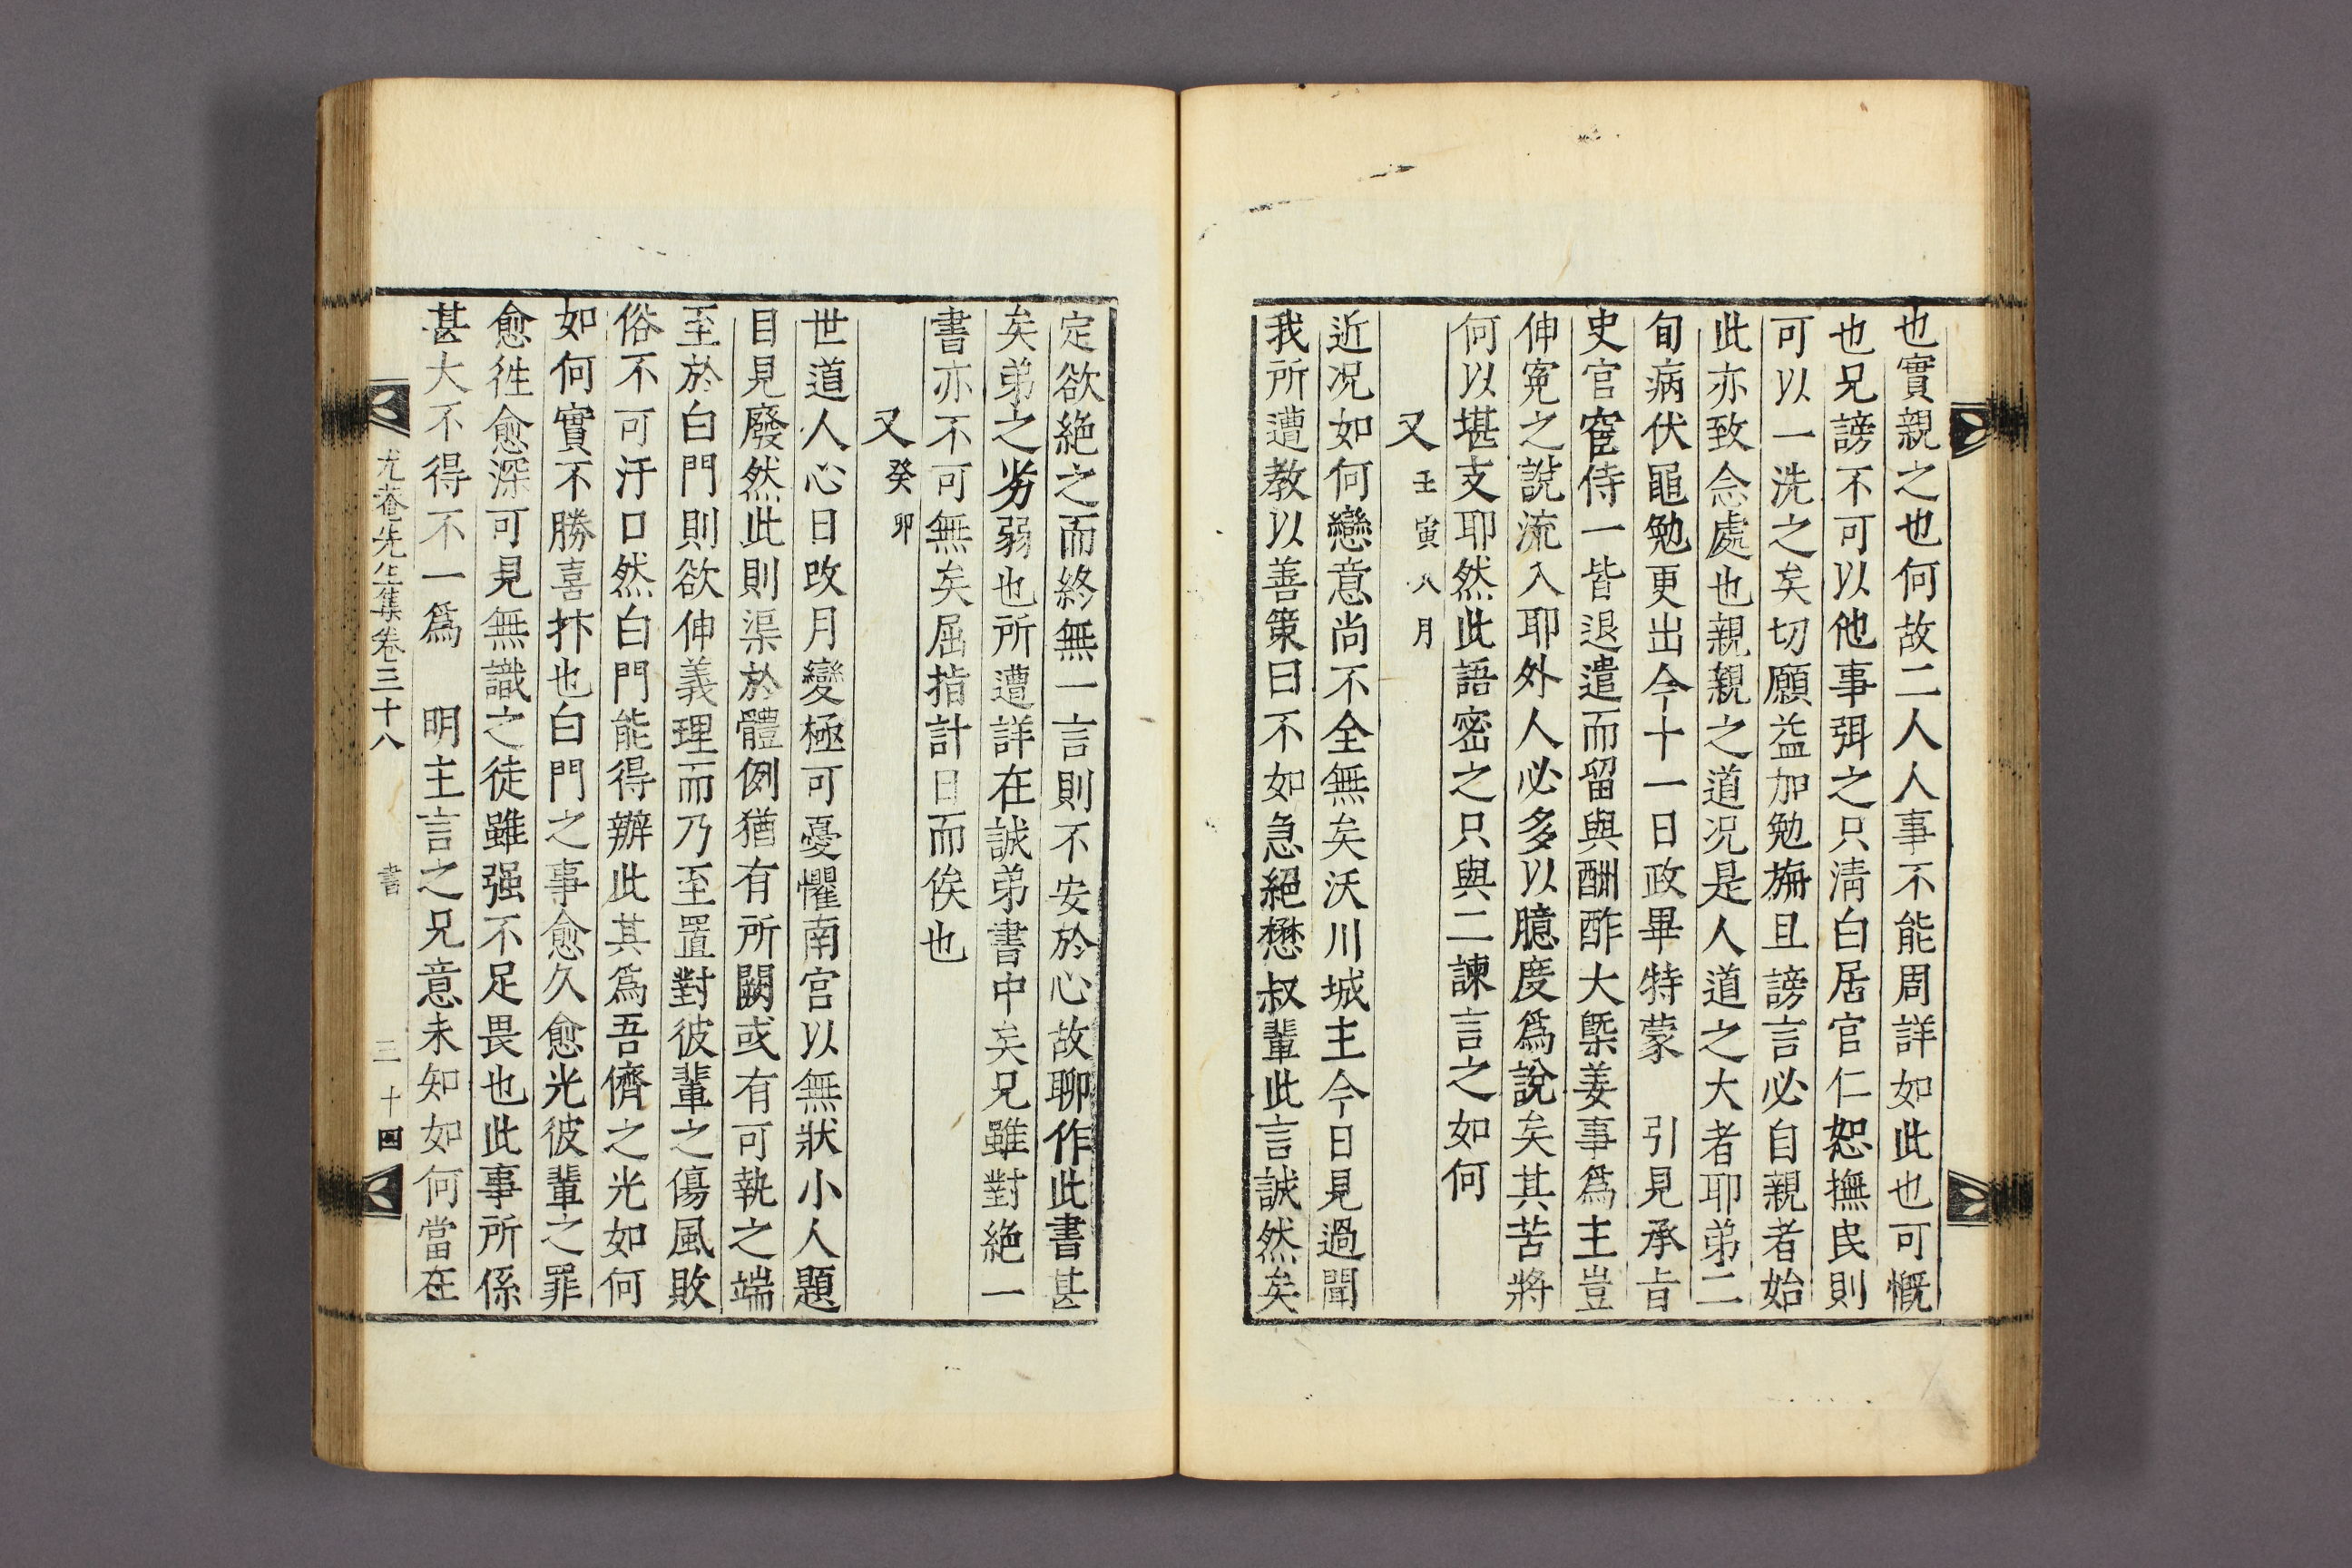 也實親之也何故二人人事不能周詳如此也可慨
也兄謗不可以他事弭之只淸白居官仁恕撫民則
可以一洗之矣切願益加勉旃且謗言必自親者始
此亦致念處也親親之道况是人道之大者耶弟二
旬病伏黽勉更出今十一日政畢特蒙　引見承旨
史官宦侍一皆退遣而留與酬酢大槩姜事爲主豈
伸寃之說流入耶外人必多以臆度爲說矣其苦將
何以堪支耶然此語密之只與二諫言之如何
又 壬寅八月
近况如何戀意尚不全無矣沃川城主今日見過聞
我所遭教以善策曰不如急絕懋叔輩此言誠然矣
定欲絶之而終無一言則不安於心故聊作此書甚
矣弟之劣弱也所遭詳在誠弟書中矣兄雖對絶一
書亦不可無矣屈指計日而俟也
又 癸卯
世道人心日改月變極可憂懼南宫以無狀小人題
目見廢然此則渠於體例猶有所闕或有可執之端
至於白門則欲伸義理而乃至置對彼輩之傷風敗
俗不可汙口然白門能得辦此其爲吾儕之光如何
如何實不勝喜抃也白門之事愈久愈光彼輩之罪
愈徃愈深可見無識之徒雖强不足畏也此事所係
甚大不得不一爲　明主言之兄意未知如何當在
尤菴先生集卷三十八　書　三十四